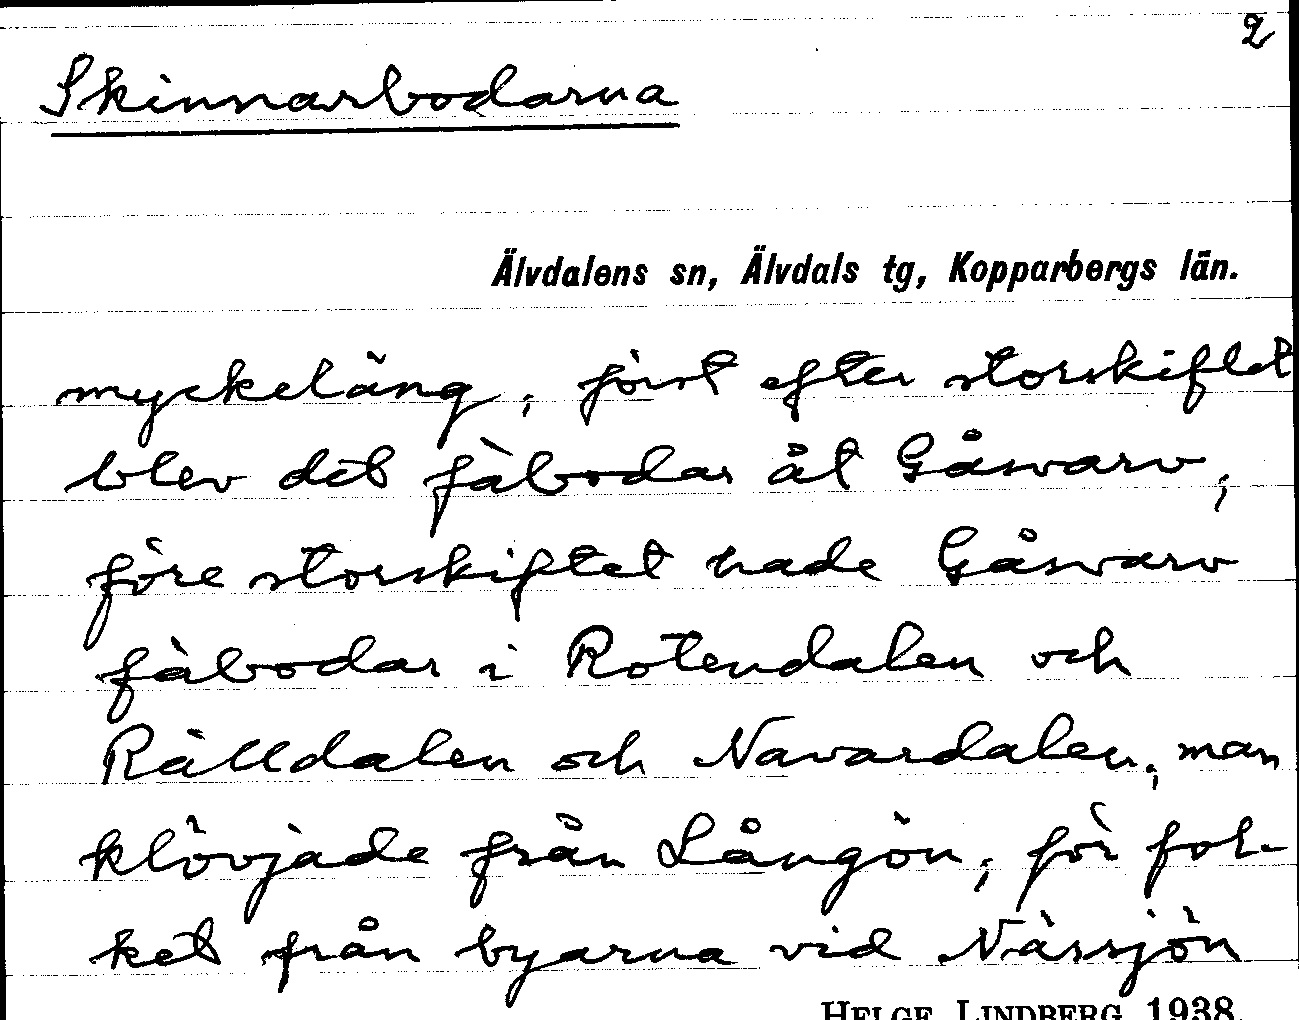 2
Skinnarbodarna
Älvdalens sn, Älvdals tg, Kopparbergs län.
myckeläng, först efter storskiftet
blev det fäbodar åt Gåsvarv,
före storskiftet hade Gåsvarv
fäbodar i Rotendalen och
Rälldalen och Navardalen, man
klövjade från Långön, för fol-
ket från byarna vid Nässjön
HELGE LINDBERG 1938.